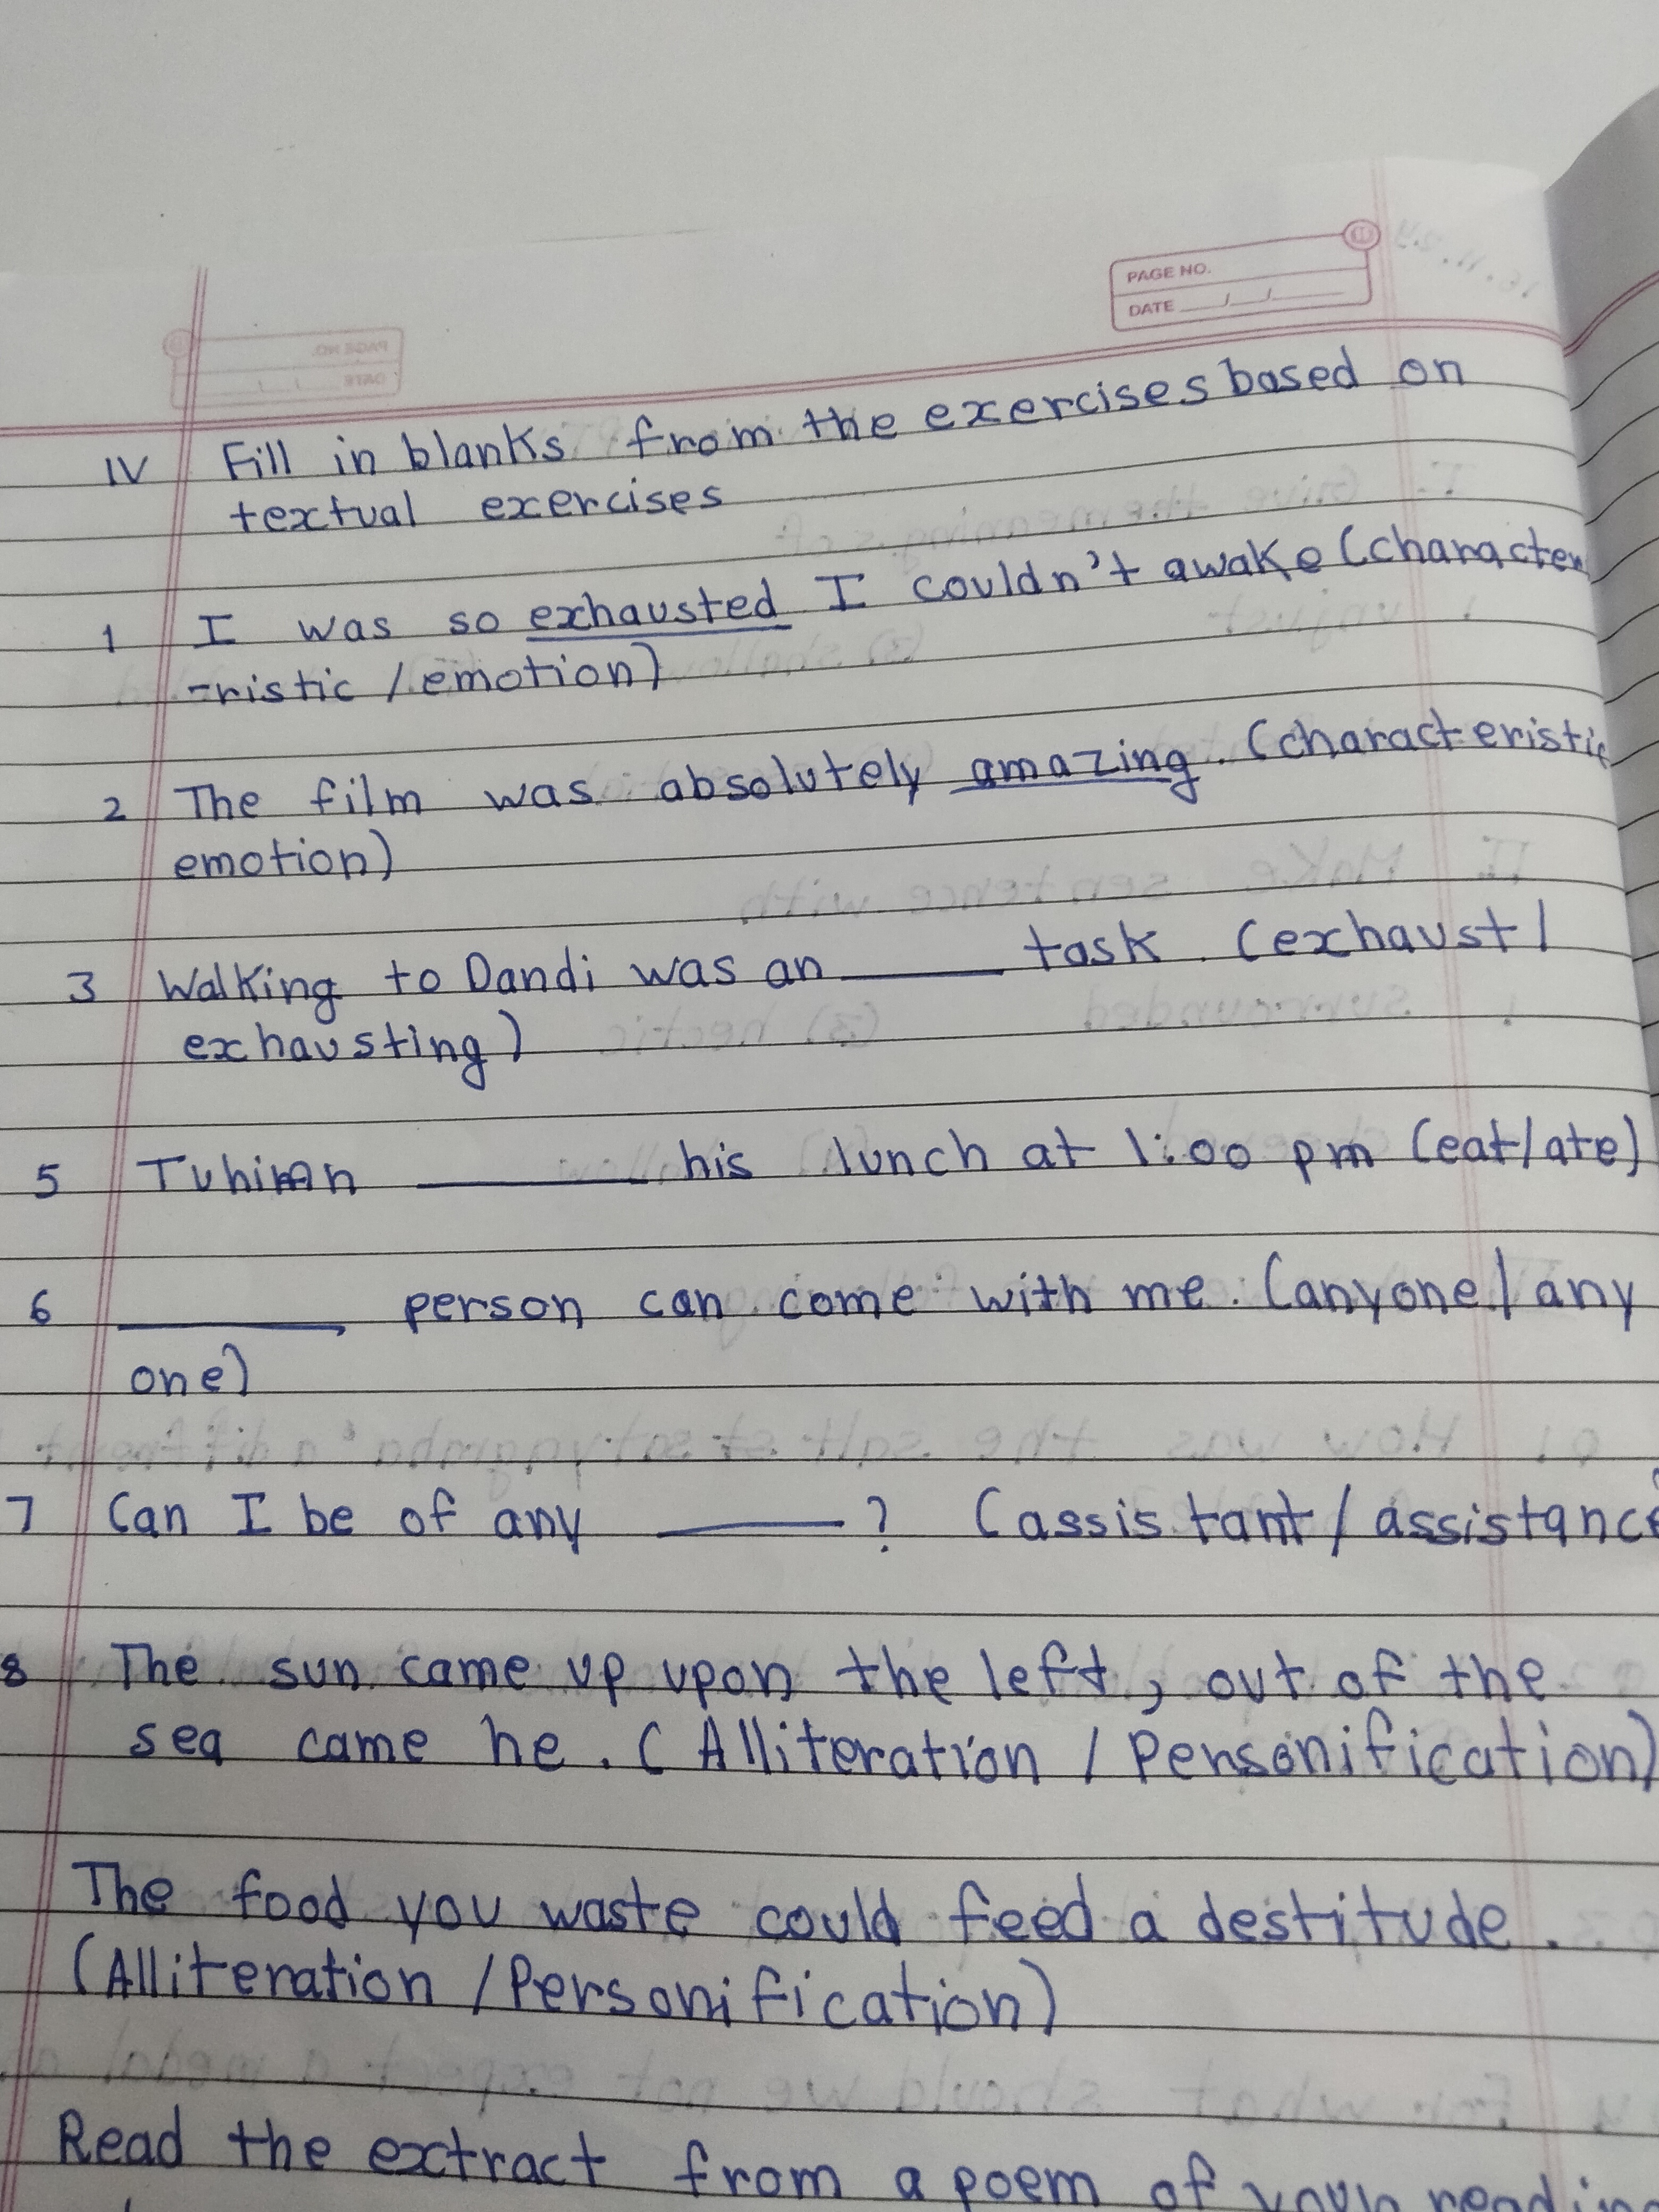 PAGE NO.
DATE
IV Fill in blanks from the exercises based on
textual exercises
1 I was so exhausted I couldn't awake (character
-ristic / emotion)
2 The film was absolutely amazing. (characteristic
emotion)
3 Walking to Dandi was an ______ task. (exhaust /
exhausting)
5 ______ his lunch at 1:00 pm (eat/ate)
6 ______ person can come with me. (anyone / any
one)
7 Can I be of any ______? (assistant / assistance
8 The sun came up upon the left, out of the
sea came he. (Alliteration / Personification)
The food you waste could feed a destitude.
(Alliteration / Personification)
Read the extract from a poem of